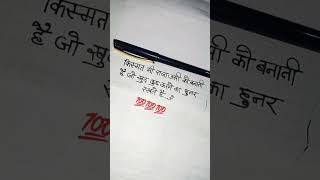 किस्मत भी राजा उसी को बनाती
है जो खुद कुछ करने का हुनर
रखते है..?
💯💯💯